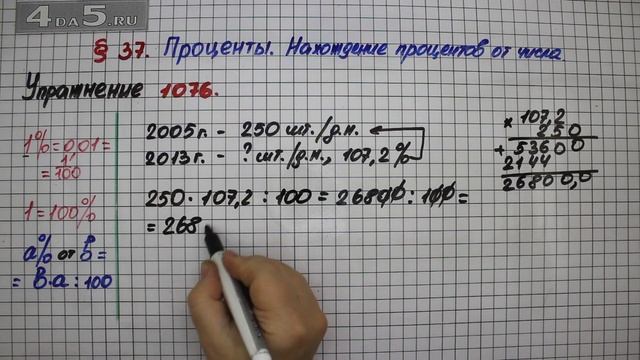 4DA5.RU
§ 37. Проценты. Нахождение процентов от числа.
Упражнение 1076.
1% = 0,01 =
= 1/100
1 = 100%
a% от b =
= b·a : 100
2005 г. - 250 шт./д.н.
2013 г. - ? шт./д.н., 107,2%
250 · 107,2 : 100 = 26800 : 100 =
= 268
× 107,2
250
+ 53600
2144
26800,0